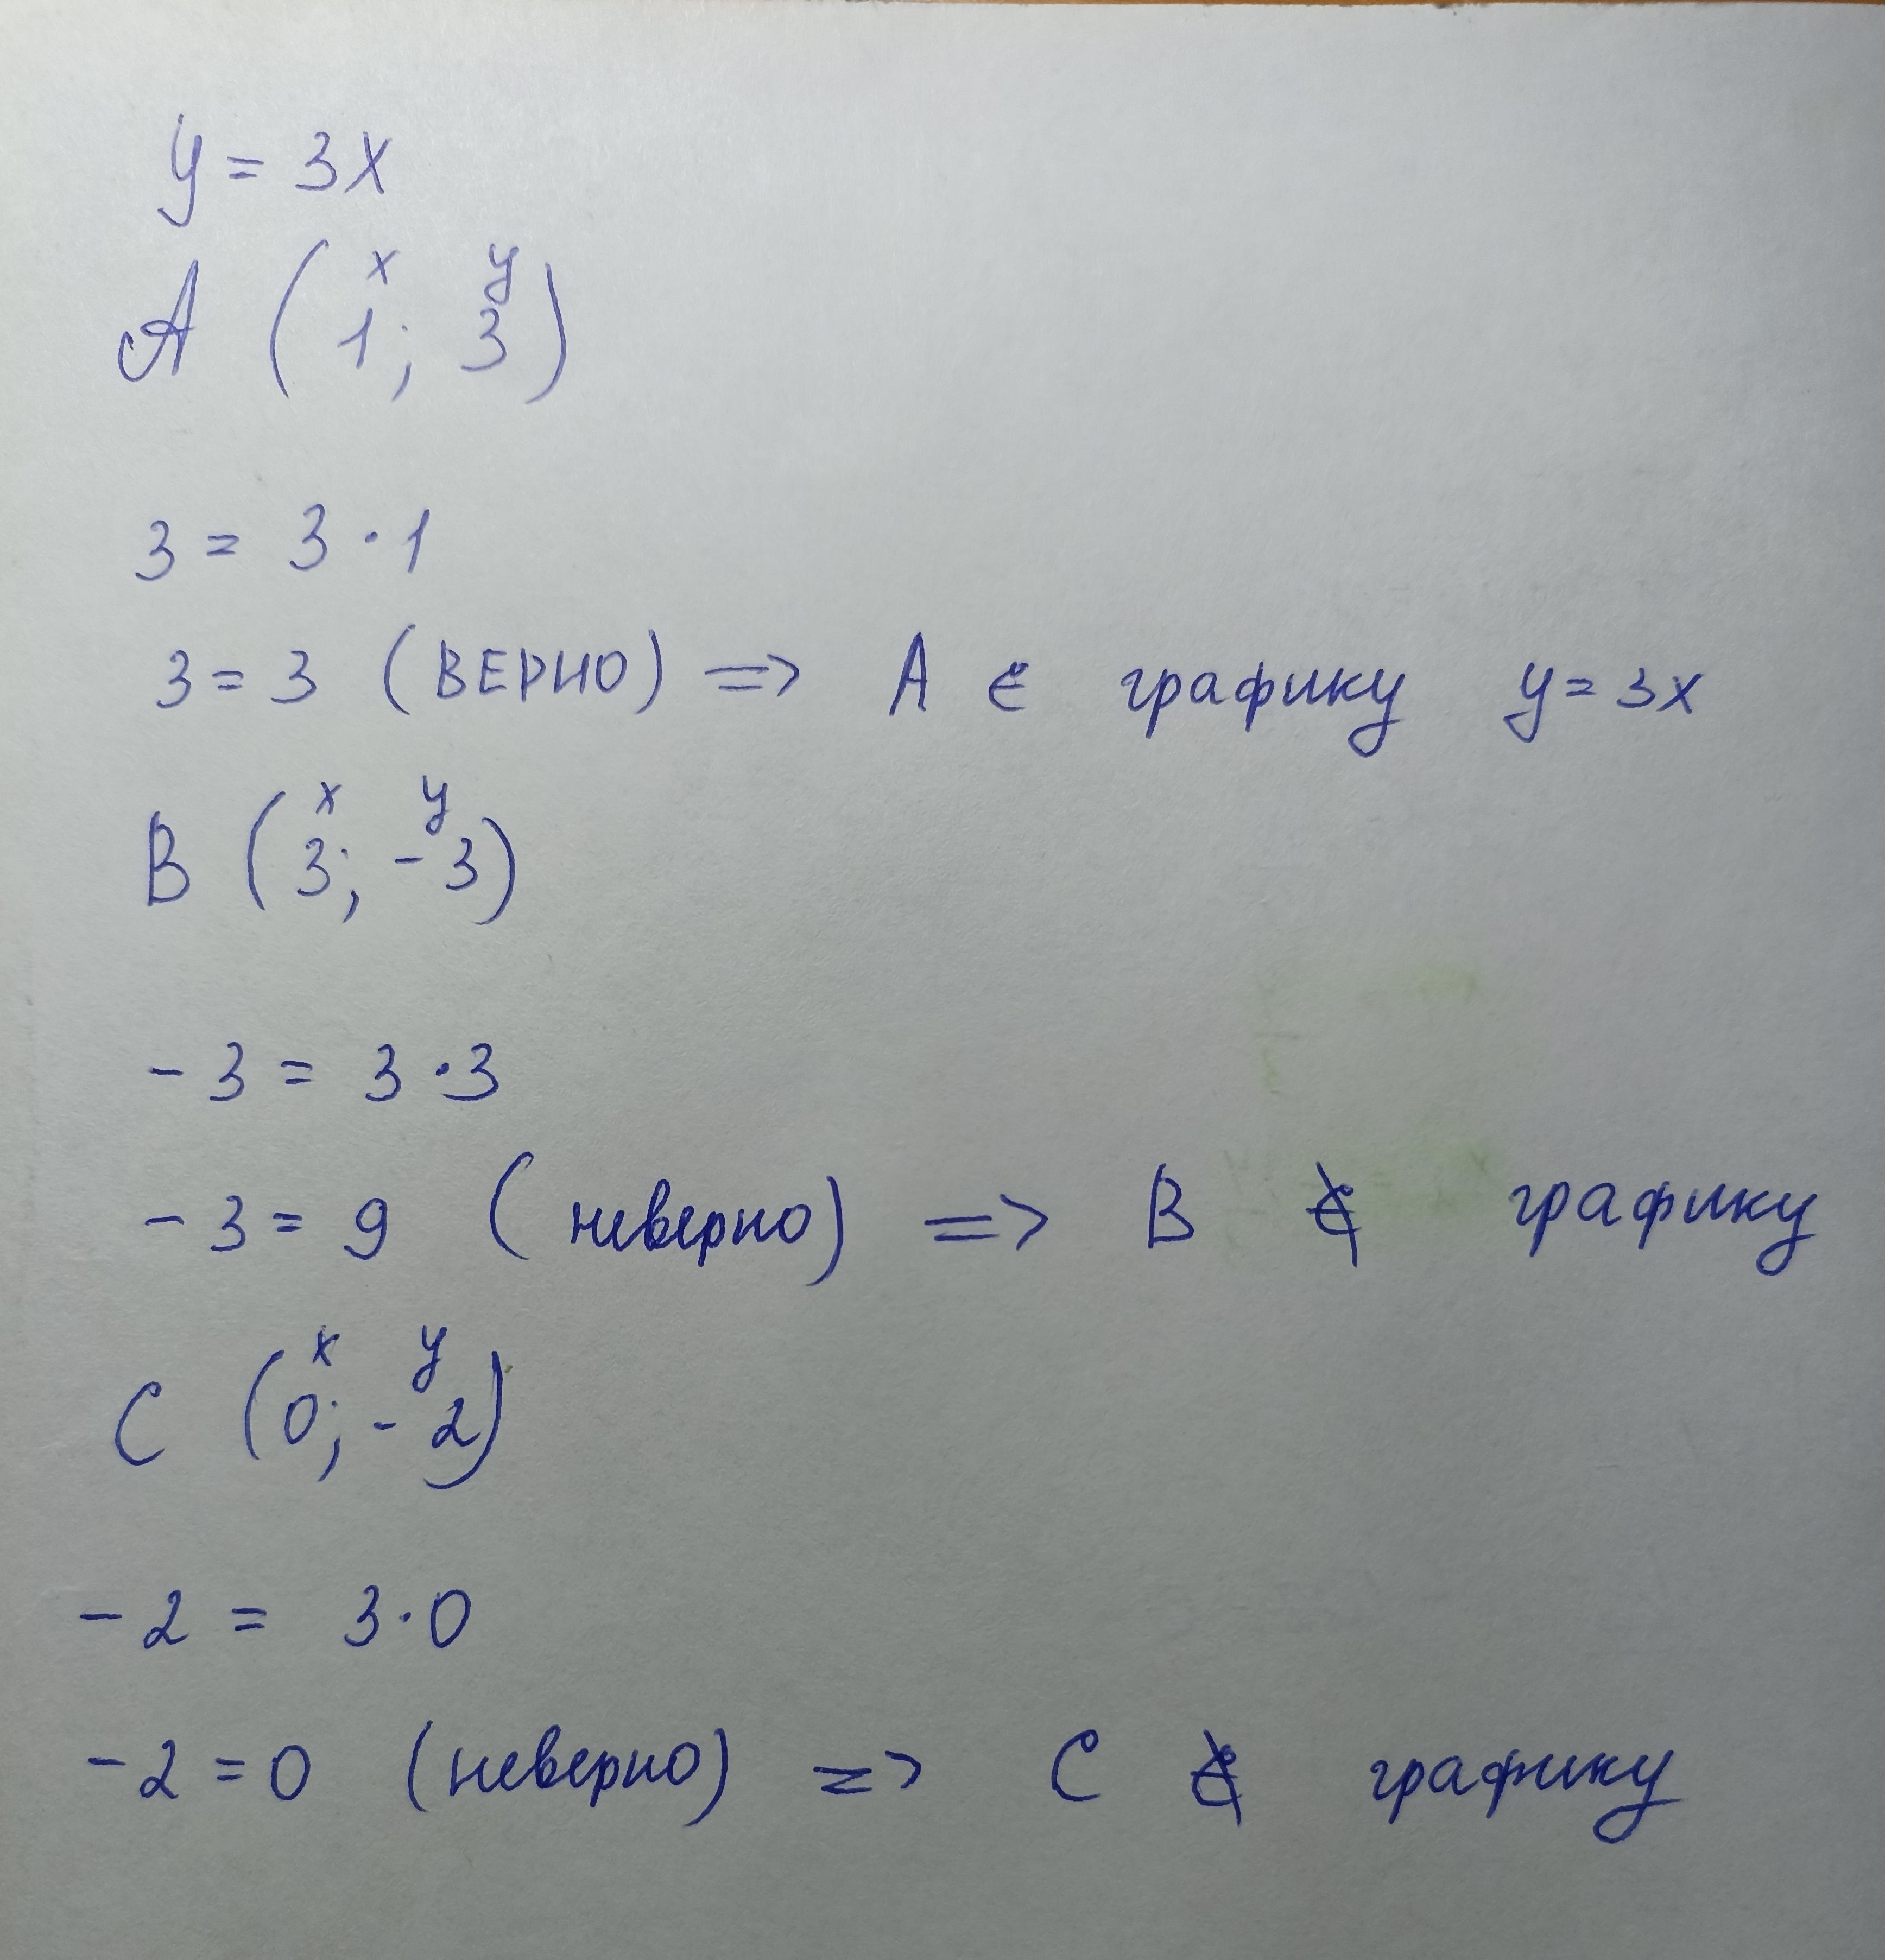 y = 3x
x y
A (1; 3)
3 = 3 · 1
3 = 3 (ВЕРНО) => A ∈ графику y = 3x
x y
B (3; -3)
-3 = 3 · 3
-3 = 9 (неверно) => B ∉ графику
x y
C (0; -2)
-2 = 3 · 0
-2 = 0 (неверно) => C ∉ графику